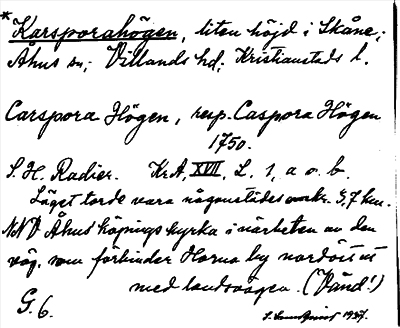 * Karsporahögen, liten höjd i Skåne;
Åhus sn; Villands hd; Kristianstads l.
Carspora Högen, resp. Caspora Högen
1750.
S. H. Radier. Kr. A, XVII, L. 1, a o. b.
Läget torde vara någonstädes omkr. 3,7 km.
NNV Åhus' köpings kyrka i närheten av den
väg, som förbinder Horna by nordöst ut
med landsvägen. (Vänd!)
G. 6.
1937.